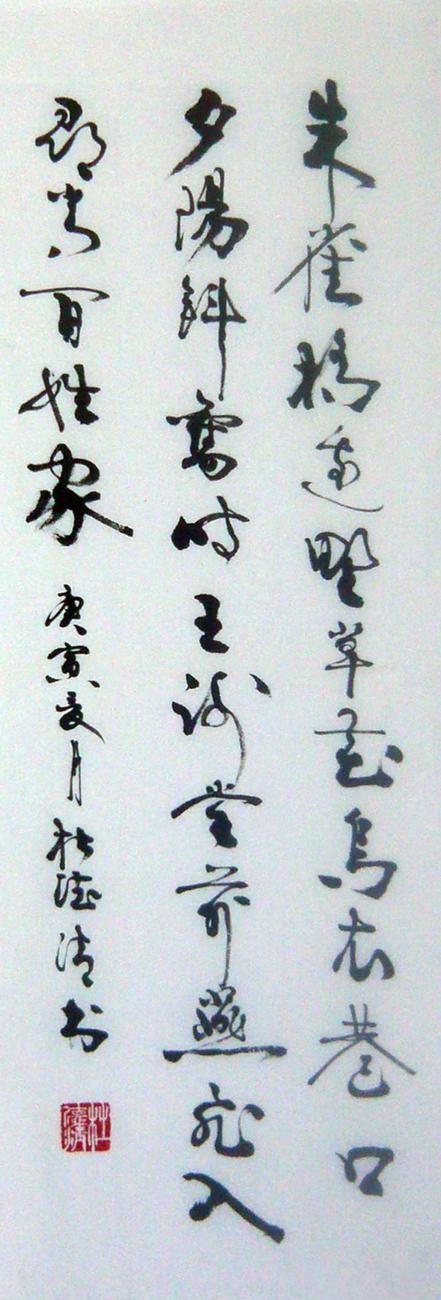 朱雀橋邊野草花烏衣巷口
夕陽斜舊時王謝堂前燕飛入
尋常百姓家 庚寅夏月 杜德清书